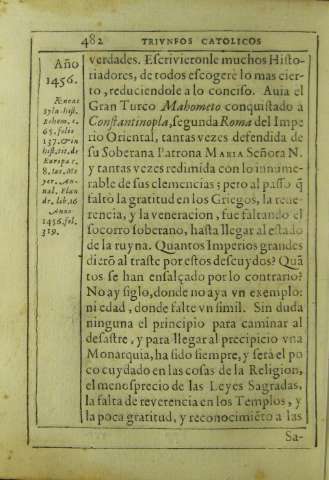 482 TRIVNFOS CATOLICOS
Año
1456.
Æneas
Sylu. hist.
Bohem. c.
65. folio
137. & in
hist. sit. de
Europa c.
8. lac. Me
yer. An-
nal. Flan
dr. lib. 16
Anno
1456. fol.
319.
verdades. Escrivieronle muchos Histo-
riadores, de todos escogerè lo mas cier-
to, reduciendole a lo conciso. Auia el
Gran Turco Mahometo conquistado à
Constantinopla, segunda Roma del Impe
rio Oriental, tantas vezes defendida de
su Soberana Patrona MARIA Señora N.
y tantas vezes redimida con lo innume-
rable de sus clemencias; pero al passo q̃
faltò la gratitud en los Griegos, la reue-
rencia, y la veneracion, fue faltando el
socorro soberano, hasta llegar al estado
de la ruyna. Quantos Imperios grandes
dierõ al traste por estos descuydos? Quã
tos se han ensalçado por lo contrario?
No ay siglo, donde no aya vn exemplo:
ni edad, donde falte vn simil. Sin duda
ninguna el principio para caminar al
desastre, y para llegar al precipicio vna
Monarquia, ha sido siempre, y serà el po
co cuydado en las cosas de la Religion,
el menosprecio de las Leyes Sagradas,
la falta de reverencia en los Templos, y
la poca gratitud, y reconocimiẽto a las
Sa-